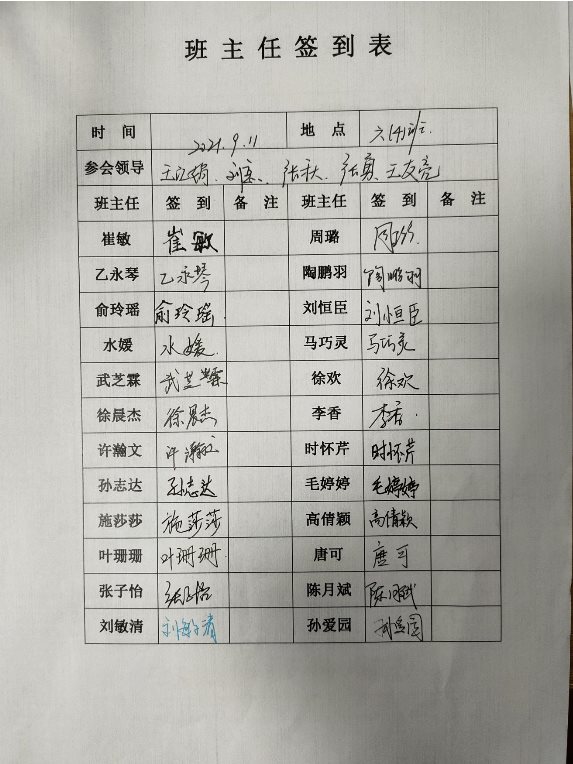 班主任签到表
时 间 2021.9.11 地 点 六(4)班
参会领导 张秋、张勇、王友亮
班主任 签 到 备 注 班主任 签 到 备 注
崔敏 崔敏 周璐 周璐
乙永琴 乙永琴 陶鹏羽 陶鹏羽
俞玲瑶 俞玲瑶 刘恒臣 刘恒臣
水媛 水媛 马巧灵 马巧灵
武芝霖 武芝霖 徐欢 徐欢
徐晨杰 徐晨杰 李香 李香
许瀚文 许瀚文 时怀芹 时怀芹
孙志达 孙志达 毛婷婷 毛婷婷
施莎莎 施莎莎 高倩颖 高倩颖
叶珊珊 叶珊珊 唐可 唐可
张子怡 张子怡 陈月斌 陈月斌
刘敏清 刘敏清 孙爱园 孙爱园